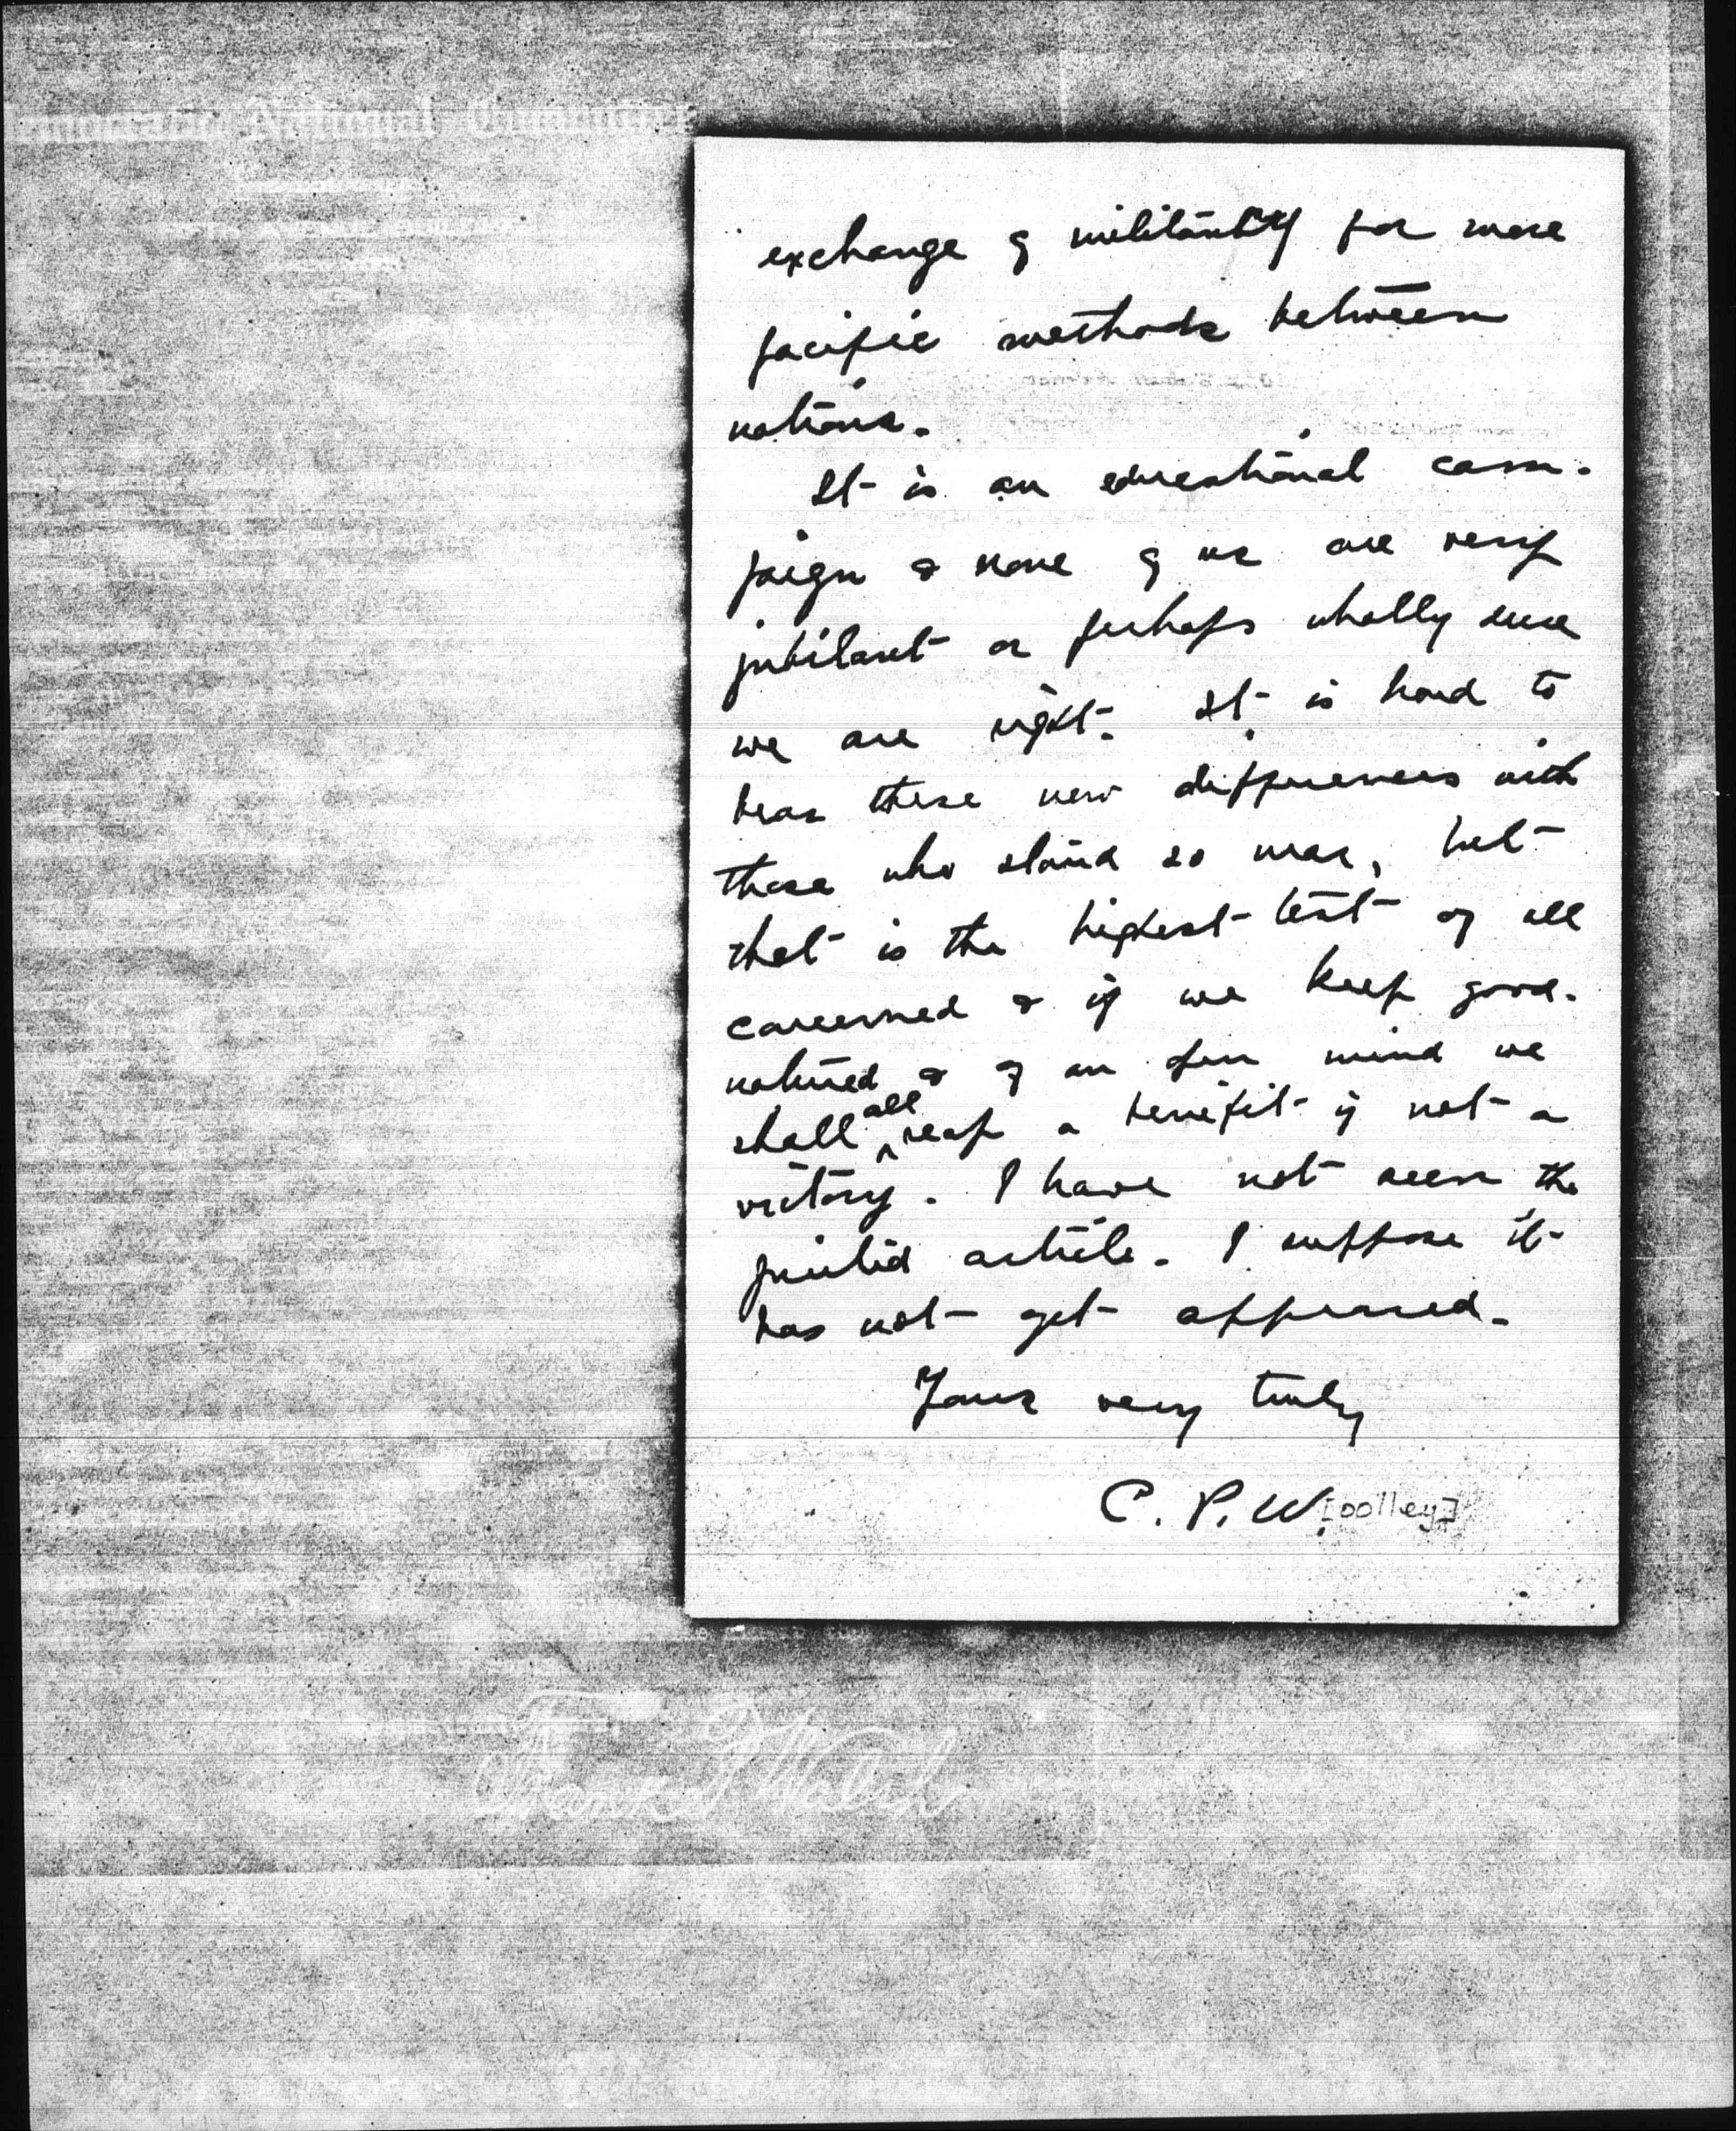 National Committee
exchange of militancy for more
pacific methods between
nations.
It is an educational cam-
paign & none of us are very
jubilant or perhaps wholly sure
we are right. It is hard to
bear these new differences with
those who stand so near, but
that is the highest test of all
concerned & if we keep good-
natured & of an open mind we
shall all reap a benefit if not a
victory. I have not seen the
printed article. I suppose it
has not yet appeared.
Yours very truly
C. P. W. [oolley]